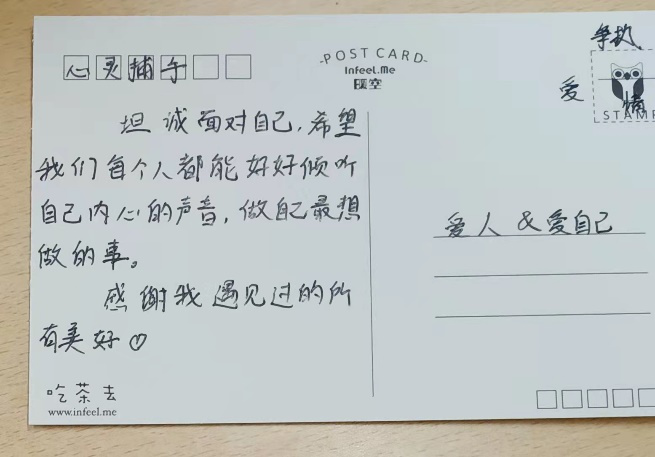 心灵捕手
坦诚面对自己,希望
我们每个人都能好好倾听
自己内心的声音,做自己最想
做的事。
感谢我遇见过的所
有美好♡
吃茶去
www.infeel.me
-POST CARD-
Infeel.Me
爱
情
STAMP
爱人 & 爱自己